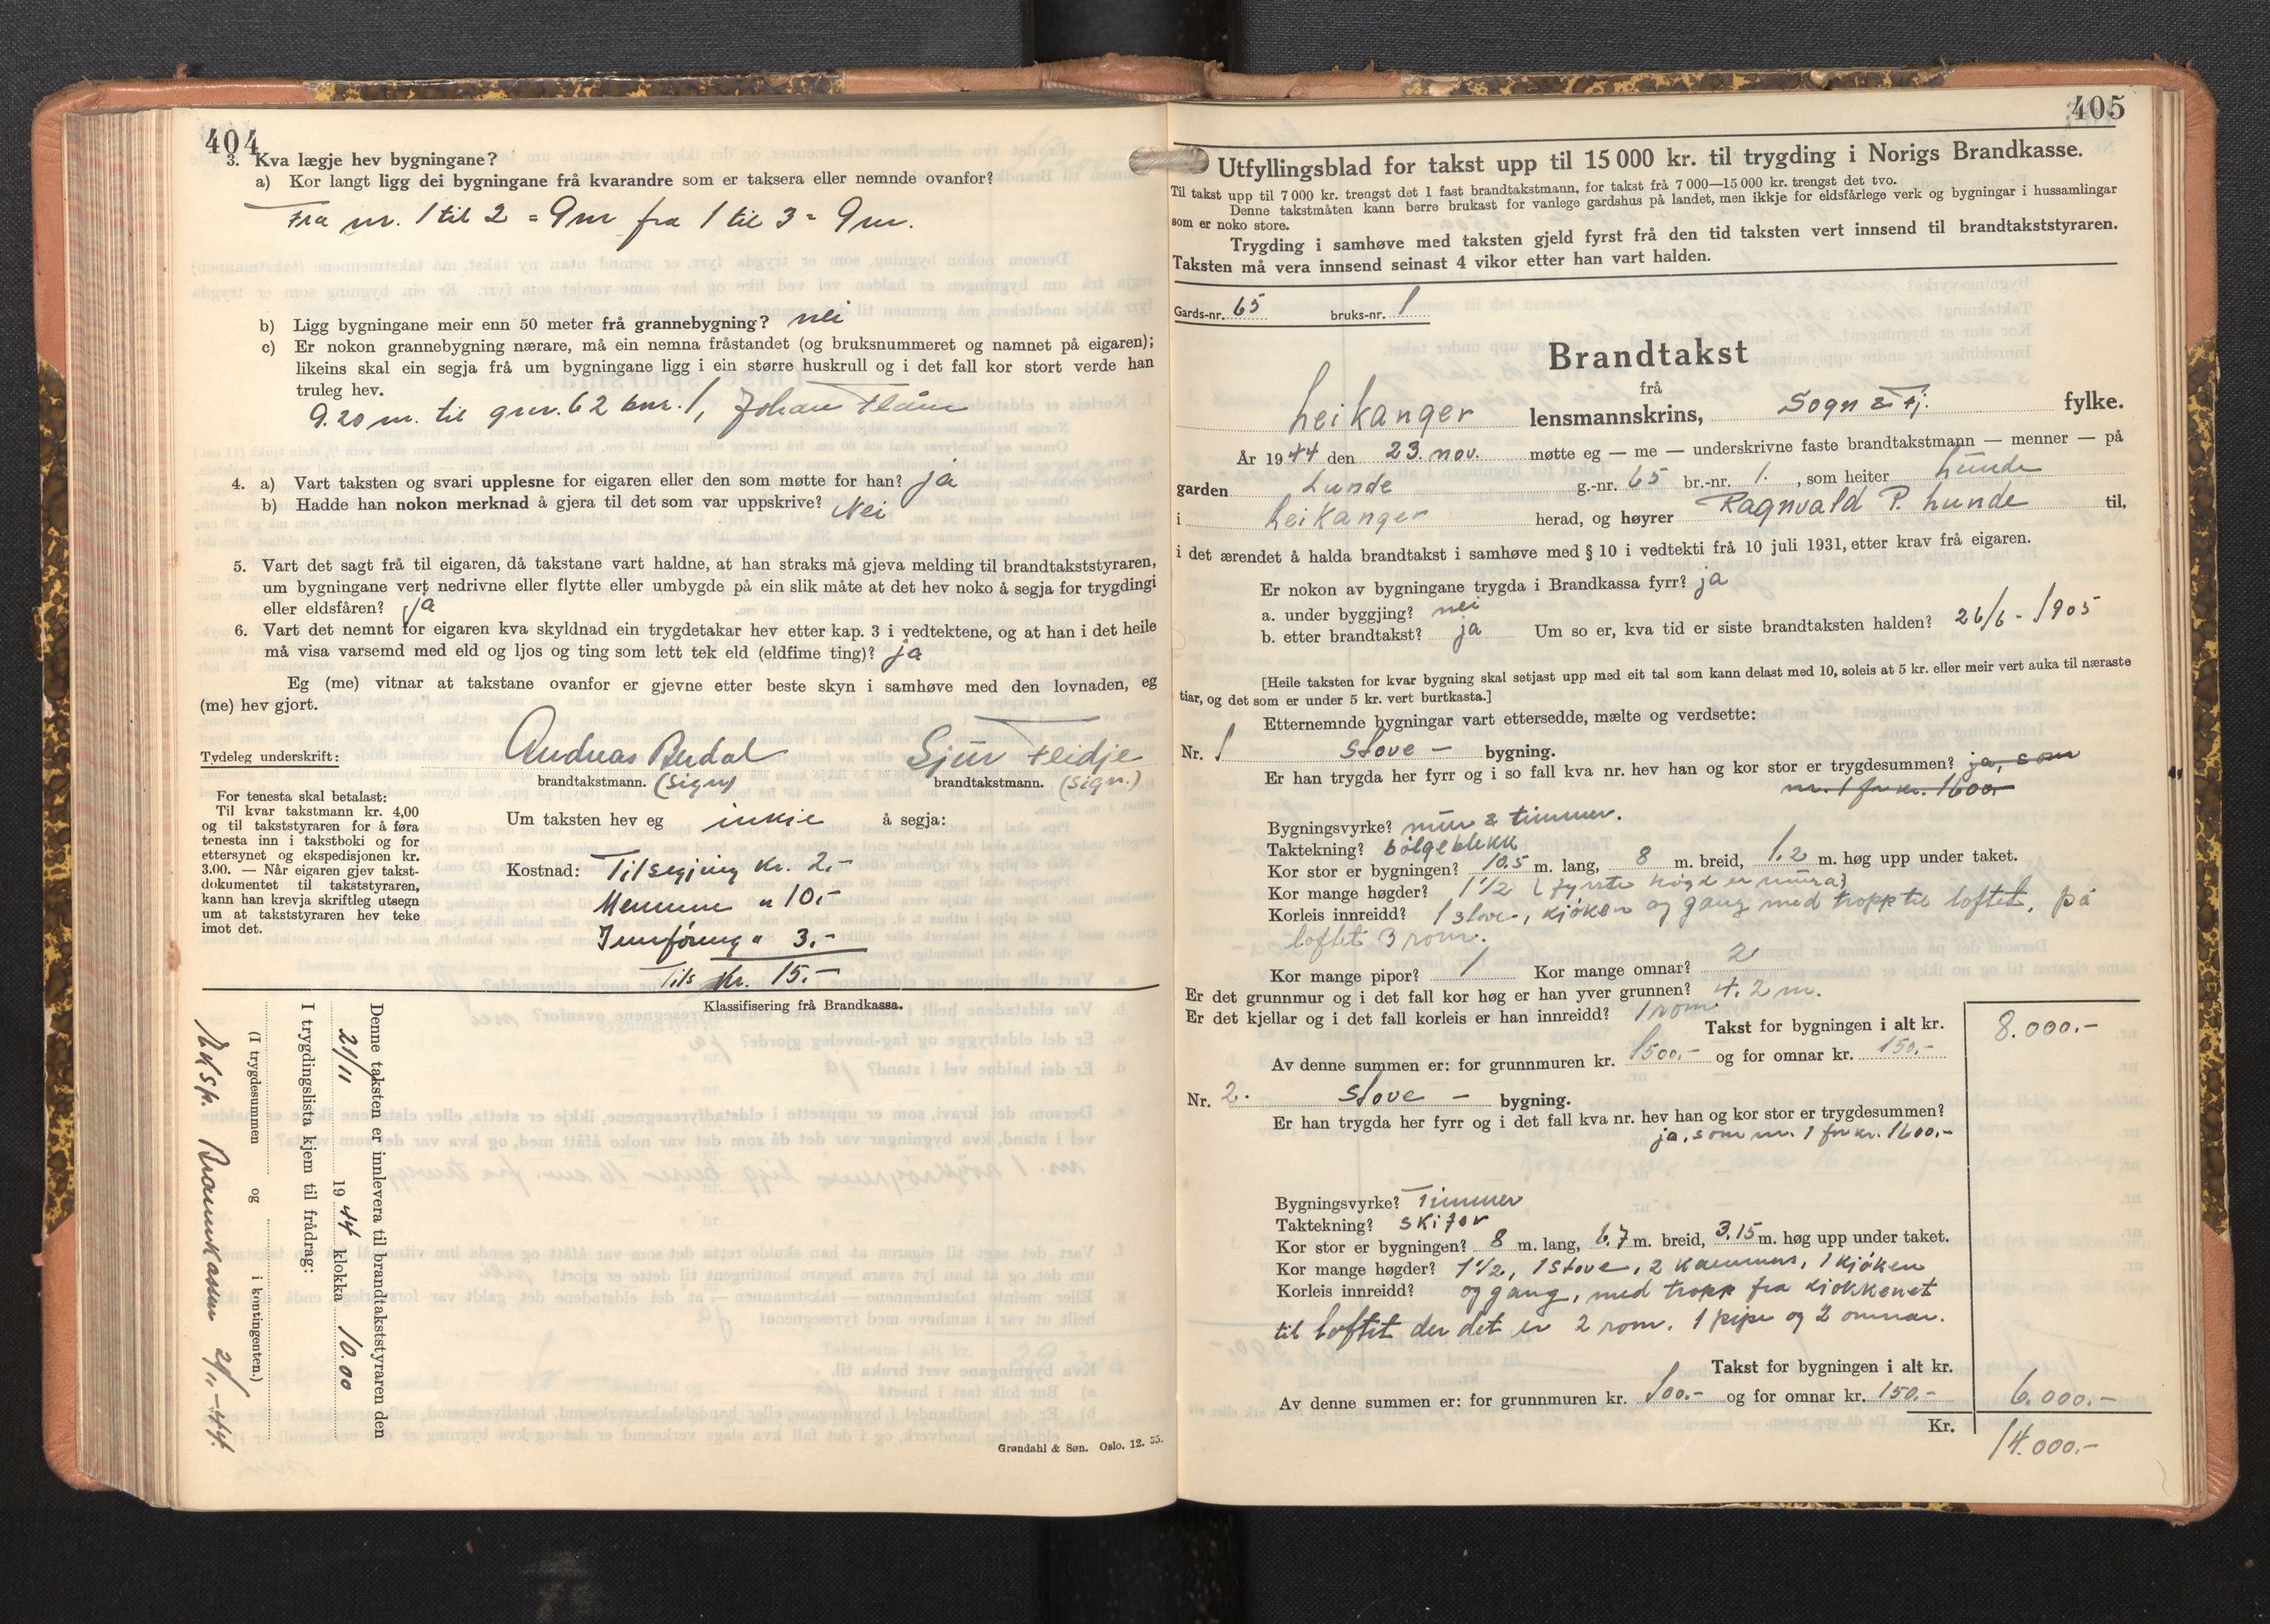 404
3. Kva lægje hev bygningane?
a) Kor langt ligg dei bygningane frå kvarandre som er taksera eller nemnde ovanfor?
Fra nr. 1 til 2 = 9 m fra 1 til 3 = 9 m.
b) Ligg bygningane meir enn 50 meter frå grannebygning? nei
c) Er nokon grannebygning nærare, må ein nemna fråstandet (og bruksnummeret og namnet på eigaren);
likeins skal ein segja frå um bygningane ligg i ein større huskrull og i det fall kor stort verde han
truleg hev.
9.20 m. til gnr. 62 bnr. 1, Johan Flåm
4. a) Vart taksten og svari upplesne for eigaren eller den som møtte for han? ja
b) Hadde han nokon merknad å gjera til det som var uppskrive? Nei
5. Vart det sagt frå til eigaren, då takstane vart haldne, at han straks må gjeva melding til brandtakststyraren,
um bygningane vert nedrivne eller flytte eller umbygde på ein slik måte at det hev noko å segja for trygdingi
eller eldsfåren? ja
6. Vart det nemnt for eigaren kva skyldnad ein trygdetakar hev etter kap. 3 i vedtektene, og at han i det heile
må visa varsemd med eld og ljos og ting som lett tek eld (eldfime ting)? ja
Eg (me) vitnar at takstane ovanfor er gjevne etter beste skyn i samhøve med den lovnaden, eg
(me) hev gjort.
Tydeleg underskrift: Andreas Sjur
brandtakstmann. (Sign) brandtakstmann. (Sign.)
For tenesta skal betalast:
Til kvar takstmann kr. 4,00
og til takststyraren for å føra
tenesta inn i takstboki og for
ettersynet og ekspedisjonen kr.
3.00. — Når eigaren gjev takst-
dokumentet til takststyraren,
kann han krevja skriftleg utsegn
um at takststyraren hev teke
imot det.
Um taksten hev eg inkje å segja:
Kostnad: Tilsegjing kr. 2.-
Mennene " 10.-
Innføring " 3.-
Tils kr. 15.-
Klassifisering frå Brandkassa.
Denne taksten er innlevera til brandtakststyraren den
21/11 1944 klokka 10.00
I trygdingslista kjem til frådrag:
(I trygdesummen og i kontingenten.)
Eksp. Brannkassen 29/11-44.
Grøndahl & Søn. Oslo. 12. 35.
405
Utfyllingsblad for takst upp til 15 000 kr. til trygding i Norigs Brandkasse.
Til takst upp til 7 000 kr. trengst det 1 fast brandtakstmann, for takst frå 7 000—15 000 kr. trengst det tvo.
Denne takstmåten kann berre brukast for vanlege gardshus på landet, men ikkje for eldsfårlege verk og bygningar i hussamlingar
som er noko store.
Trygding i samhøve med taksten gjeld fyrst frå den tid taksten vert innsend til brandtakststyraren.
Taksten må vera innsend seinast 4 vikor etter han vart halden.
Gards-nr. 65 bruks-nr. 1
Brandtakst
frå
Leikanger lensmannskrins, Sogn & Fj. fylke.
År 1944 den 23. nov. møtte eg — me — underskrivne faste brandtakstmann — menner — på
garden Lunde g.-nr. 65 br.-nr. 1. , som heiter Lunde
i Leikanger herad, og høyrer Ragnvald P. Lunde til,
i det ærendet å halda brandtakst i samhøve med § 10 i vedtekti frå 10 juli 1931, etter krav frå eigaren.
Er nokon av bygningane trygda i Brandkassa fyrr? ja
a. under byggjing? nei
b. etter brandtakst? ja Um so er, kva tid er siste brandtaksten halden? 26/6 - 1905
[Heile taksten for kvar bygning skal setjast upp med eit tal som kann delast med 10, soleis at 5 kr. eller meir vert auka til næraste
tiar, og det som er under 5 kr. vert burtkasta.]
Etternemnde bygningar vart ettersedde, mælte og verdsette:
Nr. 1 Stove - bygning.
Er han trygda her fyrr og i so fall kva nr. hev han og kor stor er trygdesummen? ja, som
nr. 1 for kr. 1600.-
Bygningsvyrke? mur & timmer.
Taktekning? bølgeblekk
Kor stor er bygningen? 10.5 m. lang, 8 m. breid, 1.2 m. høg upp under taket.
Kor mange høgder? 1 1/2 (fyrste høgd er mura)
Korleis innreidd? 1 stove, kjøken og gang med tropp til loftet, på
loftet 3 rom.
Kor mange pipor? 1 Kor mange omnar? 2
Er det grunnmur og i det fall kor høg er han yver grunnen? 4.2 m.
Er det kjellar og i det fall korleis er han innreidd? 1 rom.
Takst for bygningen i alt kr. 8.000.-
Av denne summen er: for grunnmuren kr. 1500.- og for omnar kr. 150.-
Nr. 2. Stove - bygning.
Er han trygda her fyrr og i det fall kva nr. hev han og kor stor er trygdesummen?
ja, som nr. 1 for kr. 1600.-
Bygningsvyrke? Timmer
Taktekning? Skifer
Kor stor er bygningen? 8 m. lang, 6.7 m. breid, 3.15 m. høg upp under taket.
Kor mange høgder? 1 1/2, 1 stove, 2 kammers, 1 kjøken
Korleis innreidd? og gang, med tropp fra kjøkkenet
til loftet der det er 2 rom. 1 pipe og 2 omnar.
Takst for bygningen i alt kr.
Av denne summen er: for grunnmuren kr. 100.- og for omnar kr. 150.- 6.000.-
Kr. 14.000.-